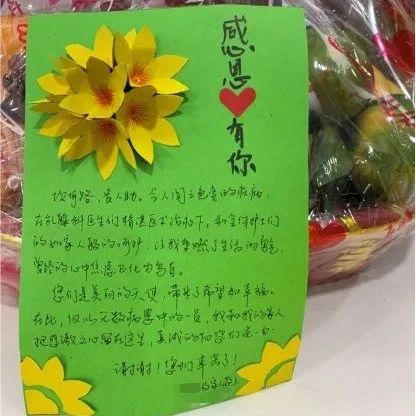 感恩
有你
坎坷路,苦人助。令人闻之色变的疾病,
在乳腺科医生们精湛医术治疗下,和全体护士们
的如家人般的呵护,让我重燃了生活的希望,
曾经的心中焦虑已化为乌有。
您们是美丽的天使,带来了希望和幸福。
在此,仅以无数病患中的一员,我和我的家人
把感激之心留在这里,真诚的向您们说一句:
谢谢!您们辛苦了!